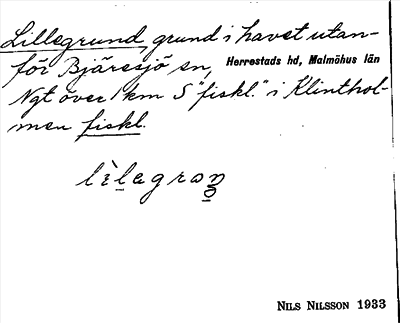 Lillegrund, grund i havet utan-
för Bjäresjö sn, Herrestads hd, Malmöhus län
Ngt över 1 km S "fiskl." i Klinthol-
men fiskl.
lìlagran
NILS NILSSON 1933